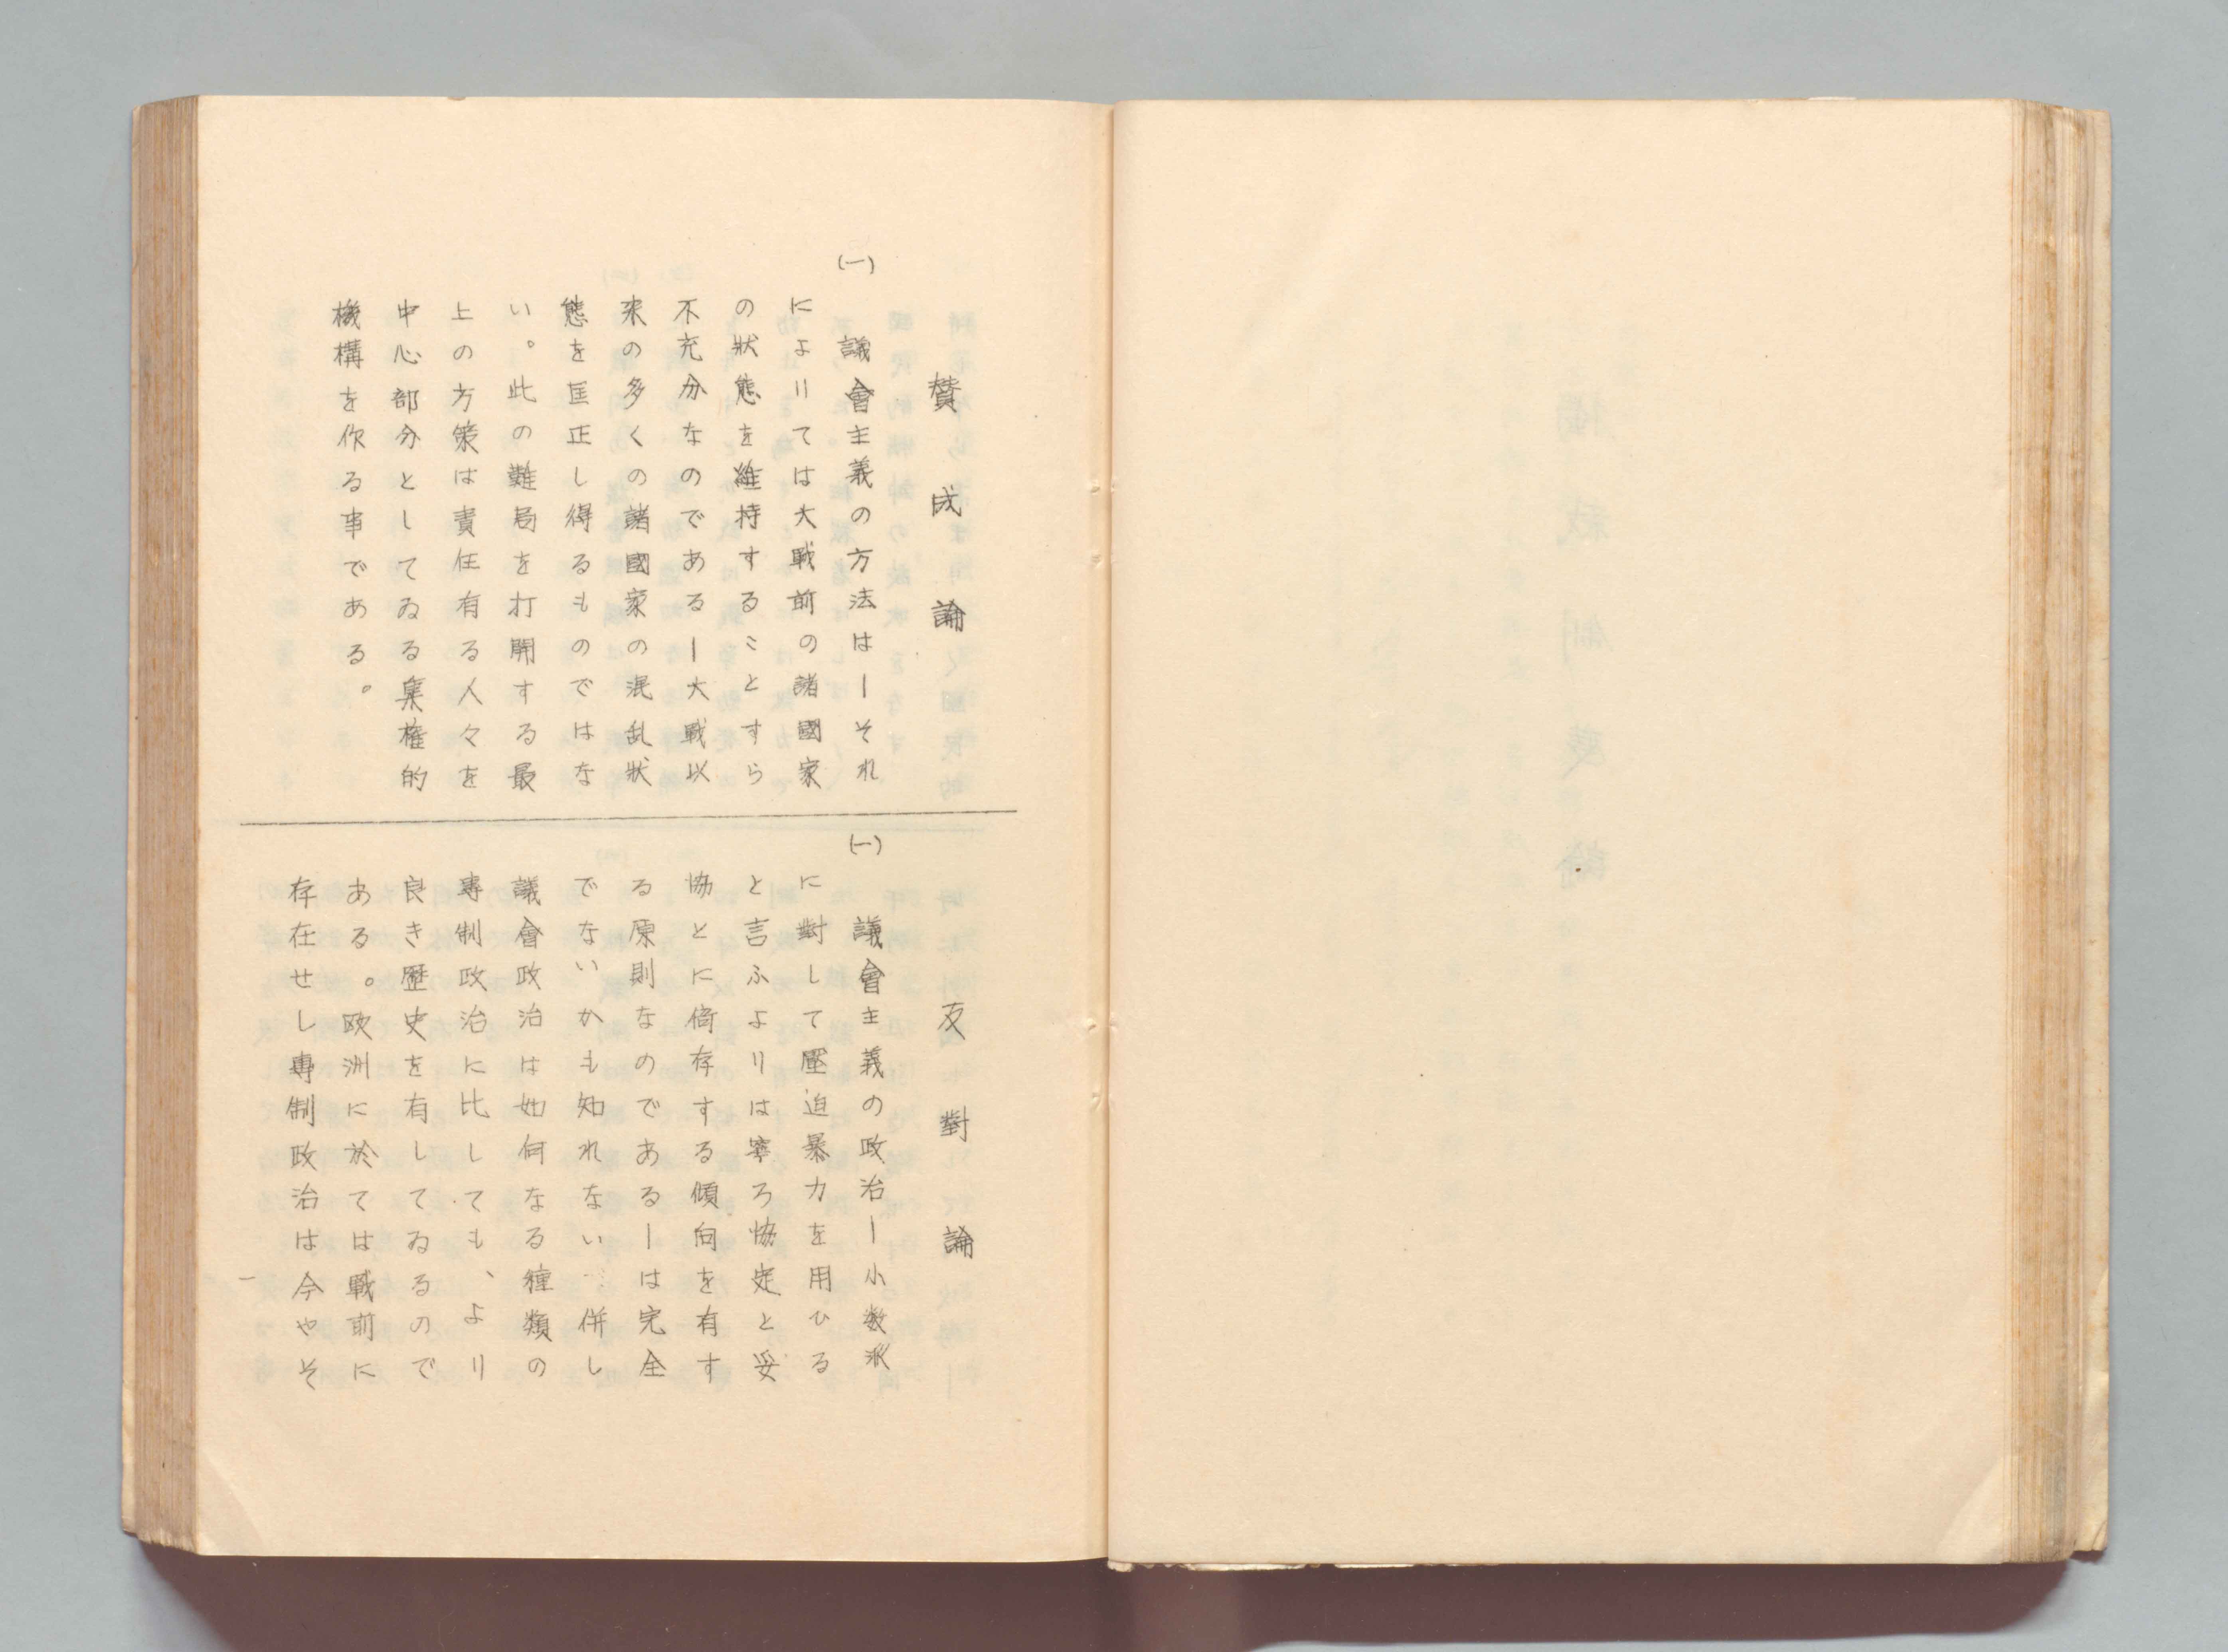 贊成論
(一)
議會主義の方法は―それ
によりては大戰前の諸國家
の狀態を維持することすら
不充分なのである―大戰以
來の多くの諸國家の混乱狀
態を匡正し得るものではな
い。此の難局を打開する最
上の方策は責任有る人々を
中心部分としてゐる集權的
機構を作る事である。
反對論
(一)
議會主義の政治―小数派
に對して壓迫暴力を用ひる
と言ふよりは寧ろ協定と妥
協とに倚存する傾向を有す
る原則なのである―は完全
でないかも知れない…併し
議會政治は如何なる種類の
專制政治に比しても、より
良き歷史を有してゐるので
ある。欧洲に於ては戰前に
存在せし專制政治は今やそ
一